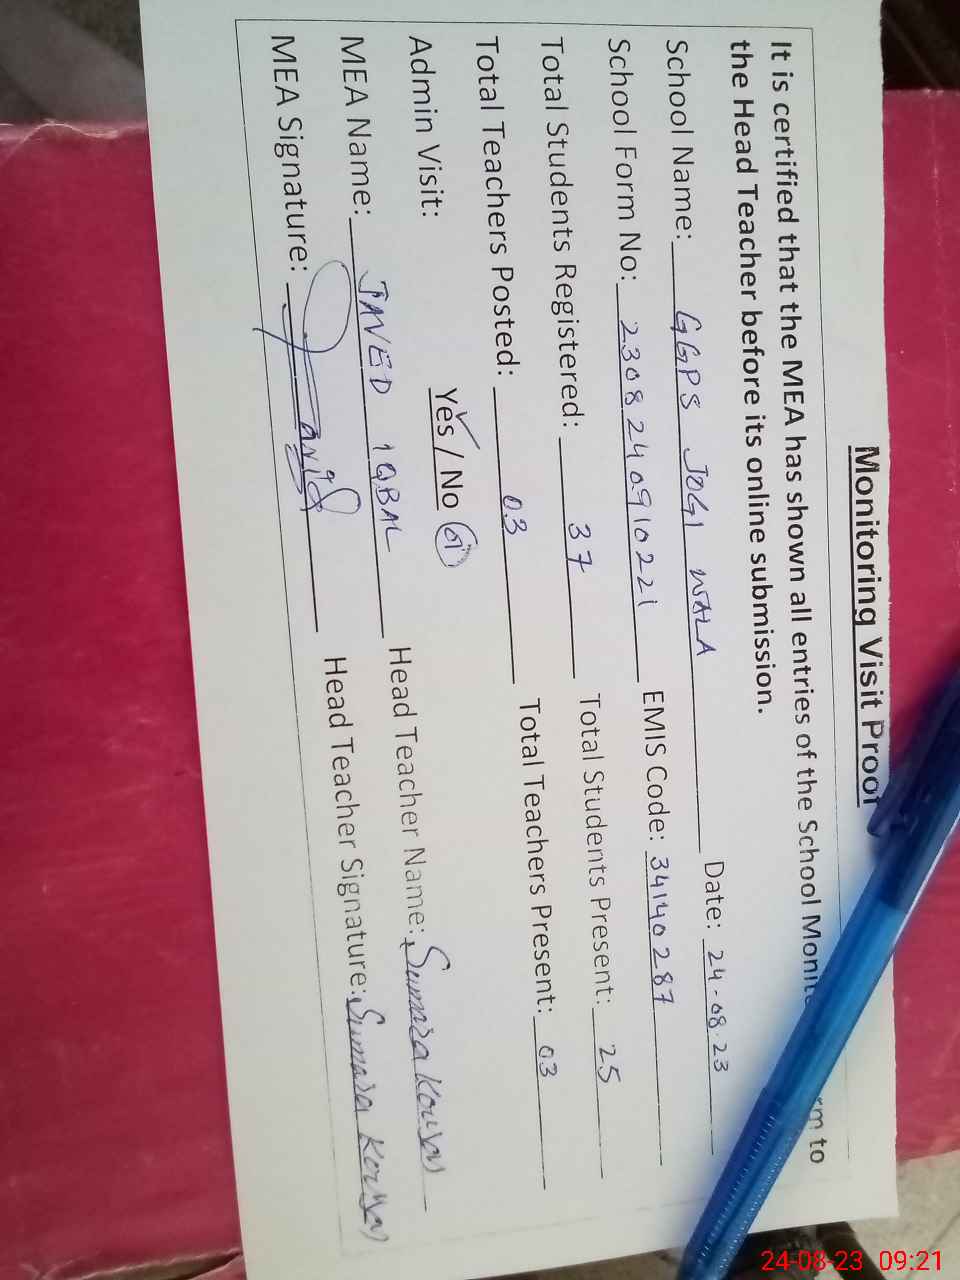 Monitoring Visit Proof
It is certified that the MEA has shown all entries of the School Monito rm to
the Head Teacher before its online submission.
School Name: GGPS JOGI WALA Date: 24-08-23
School Form No: 2308240910221 EMIS Code: 34140287
Total Students Registered: 37 Total Students Present: 25
Total Teachers Posted: 03 Total Teachers Present: 03
Admin Visit: Yes / No 01
MEA Name: JAVED IQBAL Head Teacher Name: Sumara Kousar
MEA Signature: Head Teacher Signature: Sumara Kousar
24-08-23 09:21